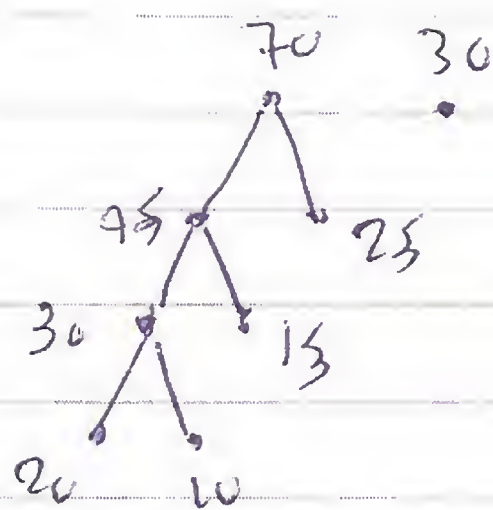 70 30
45 25
30 15
20 10